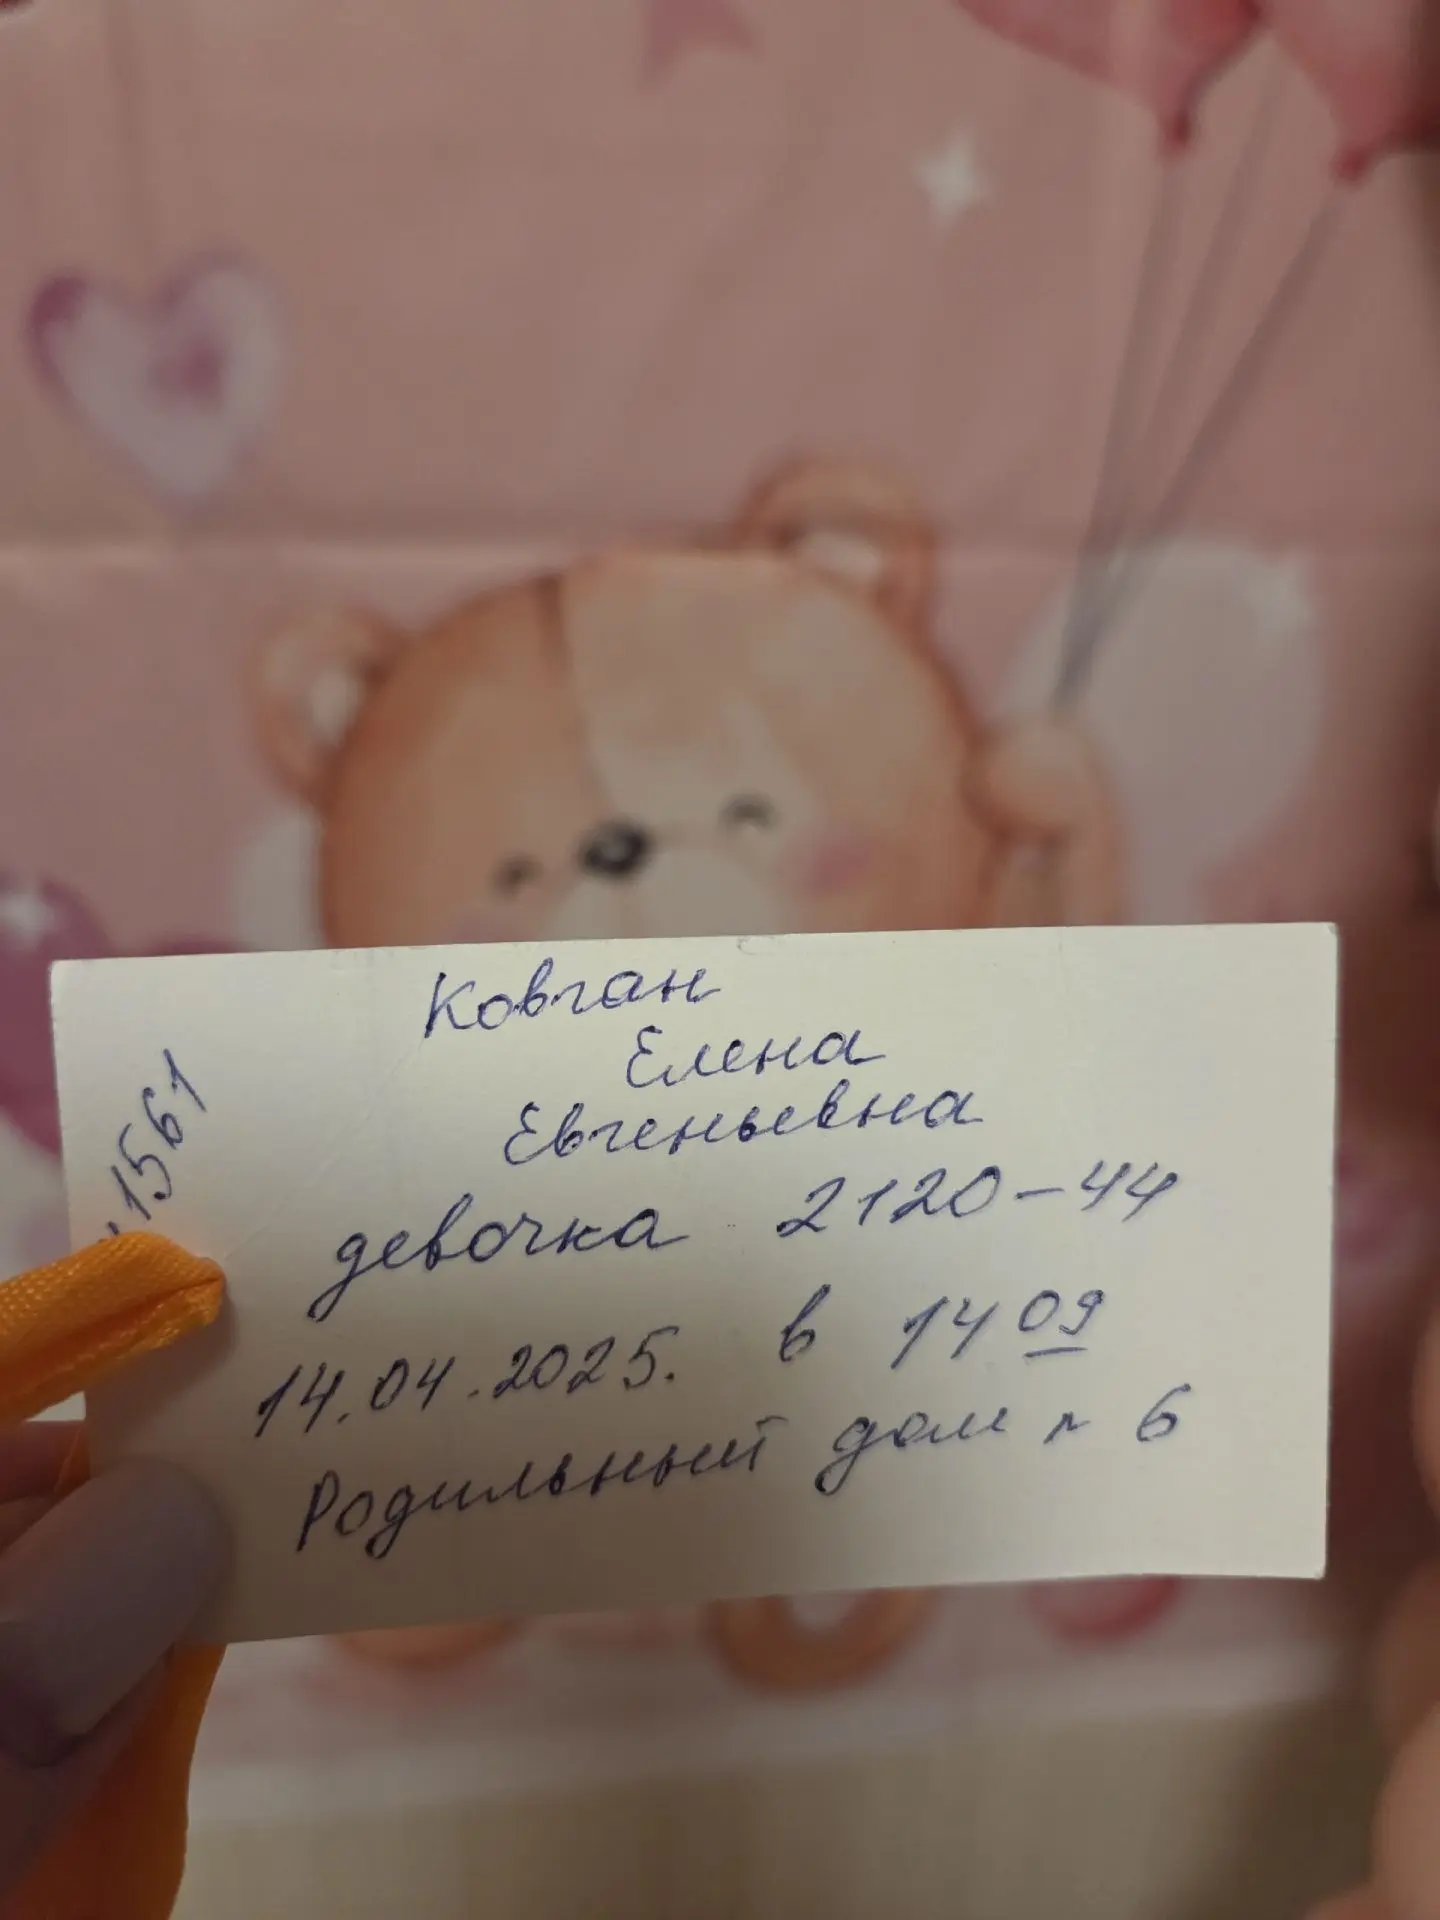 Ковган
Елена
Евгеньевна
девочка 2120-44
14.04.2025. в 14 09
Родильный дом n 6
1561